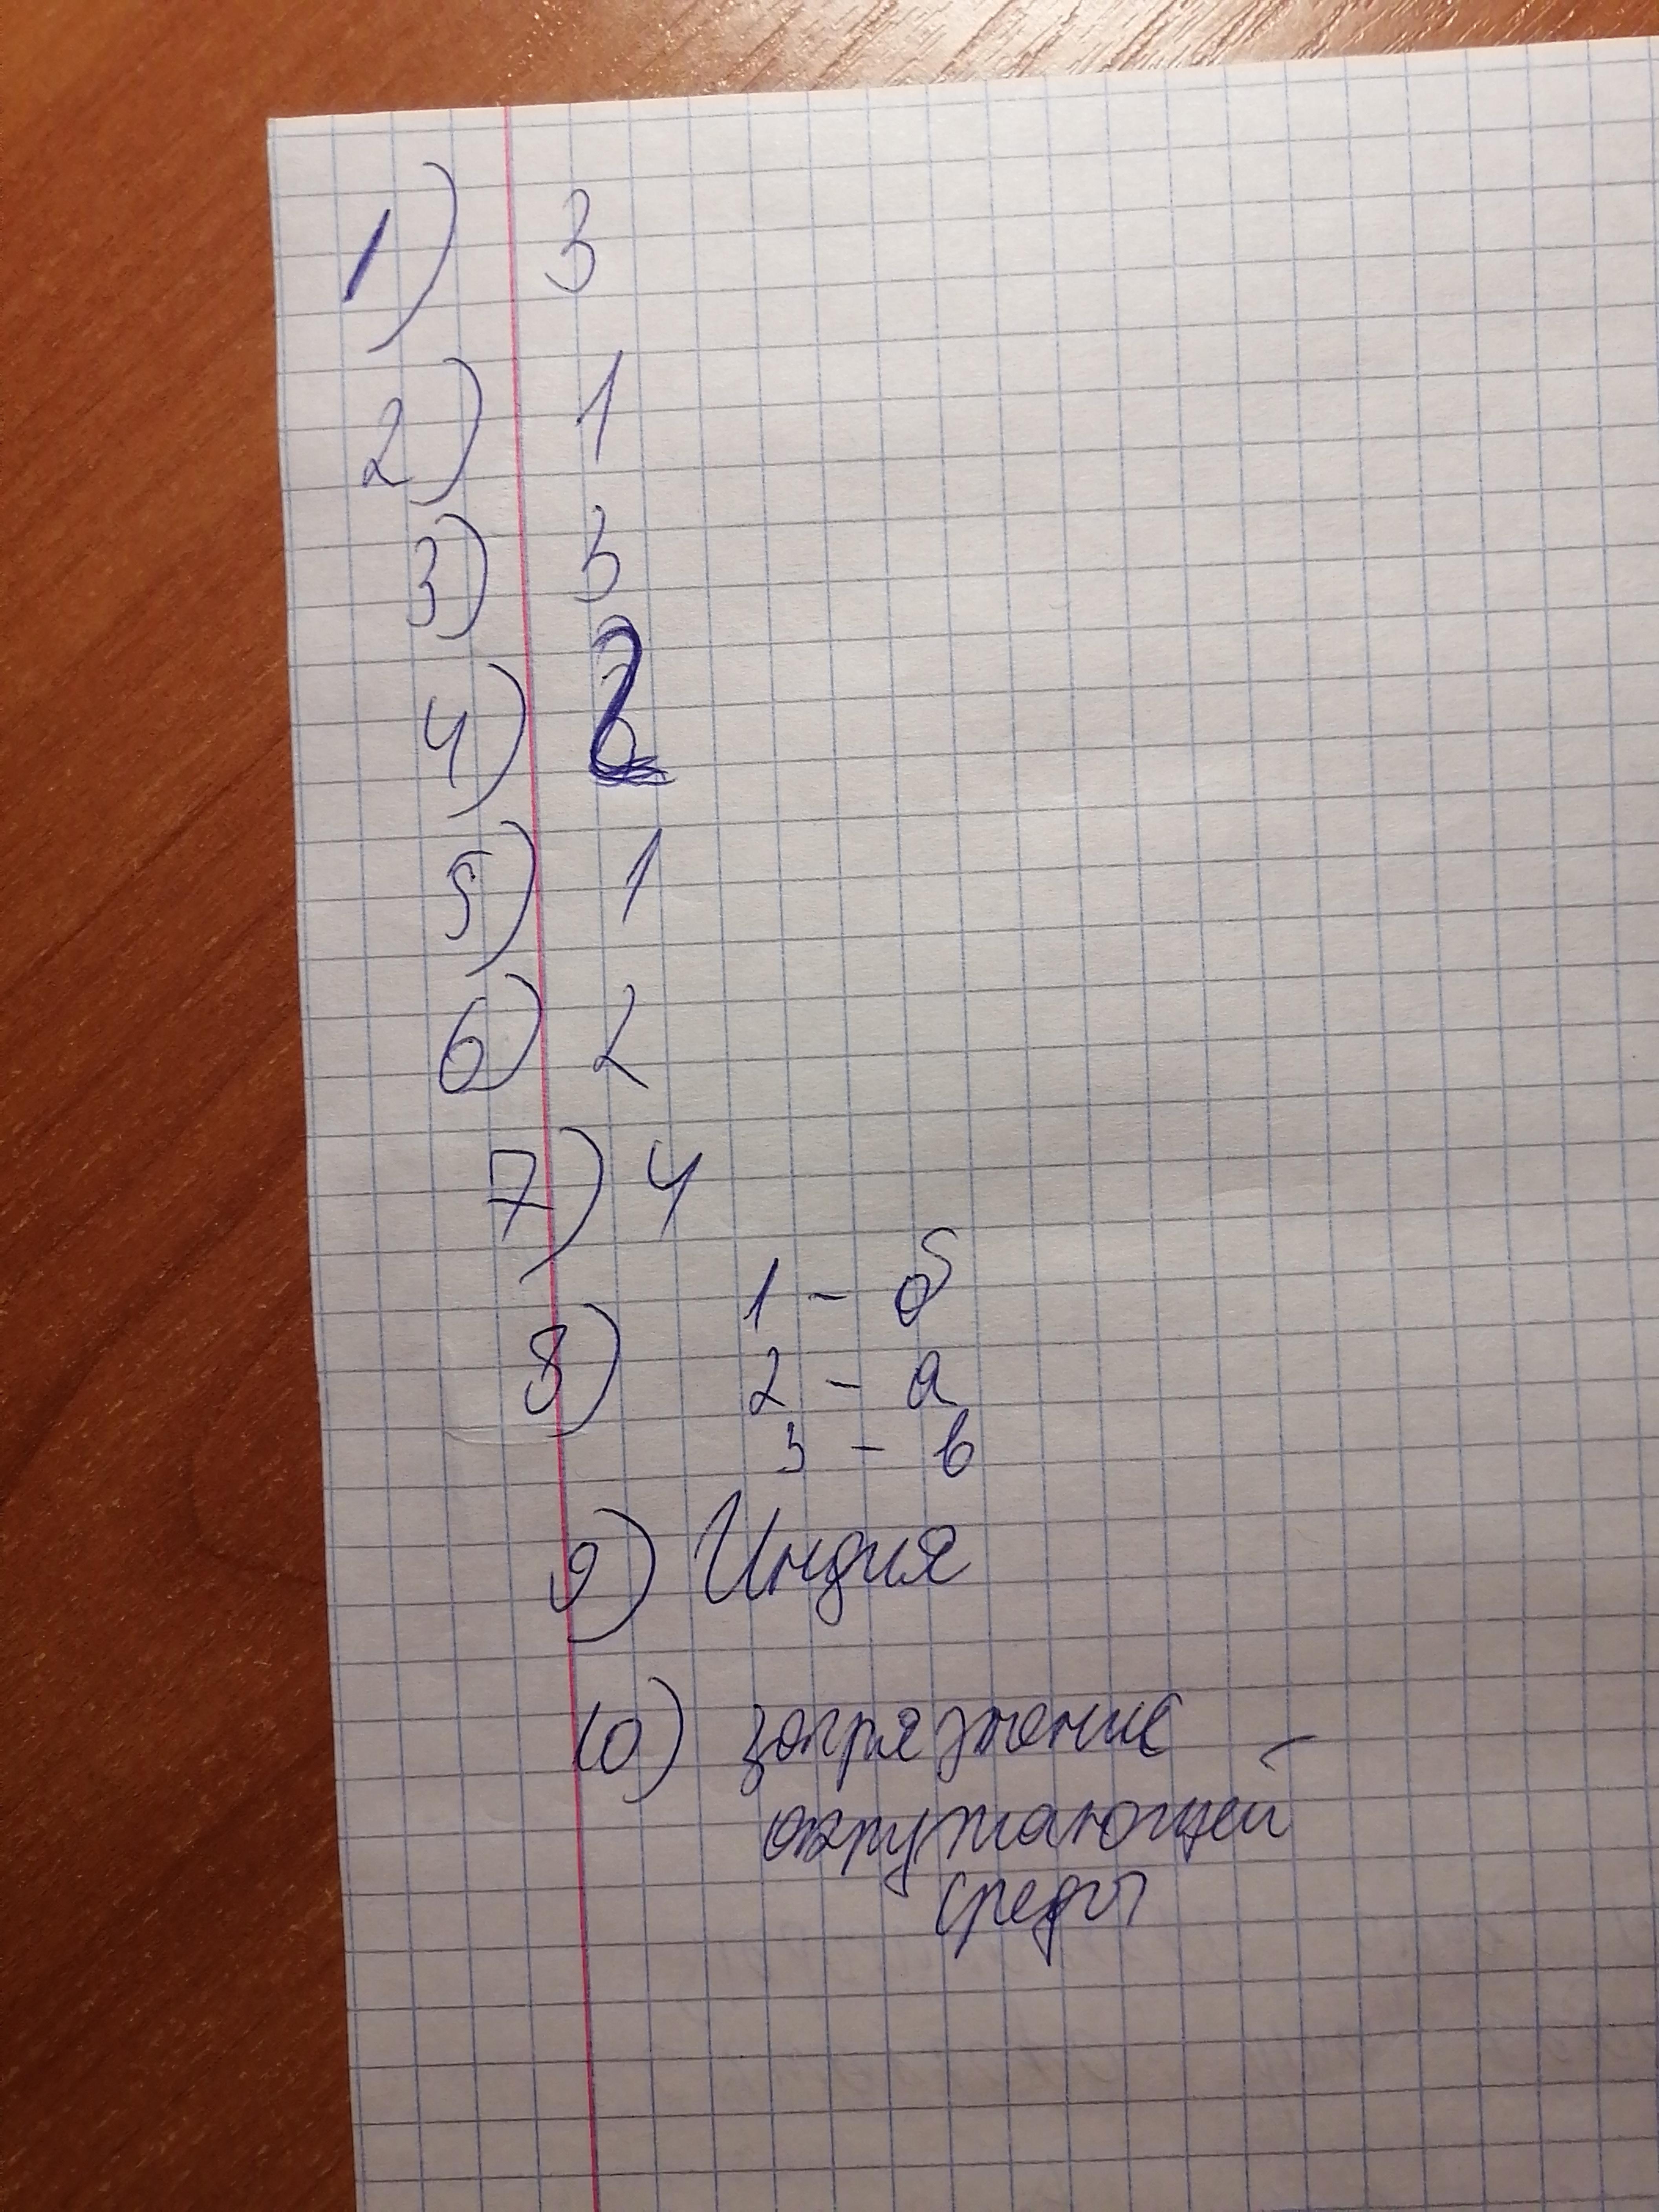 1) 3
2) 1
3) 3
4) 2
5) 1
6) 2
7) 4
8) 1 - б
2 - а
3 - в
9) Индия
10) загрязнение
окружающей
среды